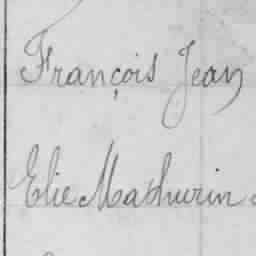 François Jean
Elie Mathurin